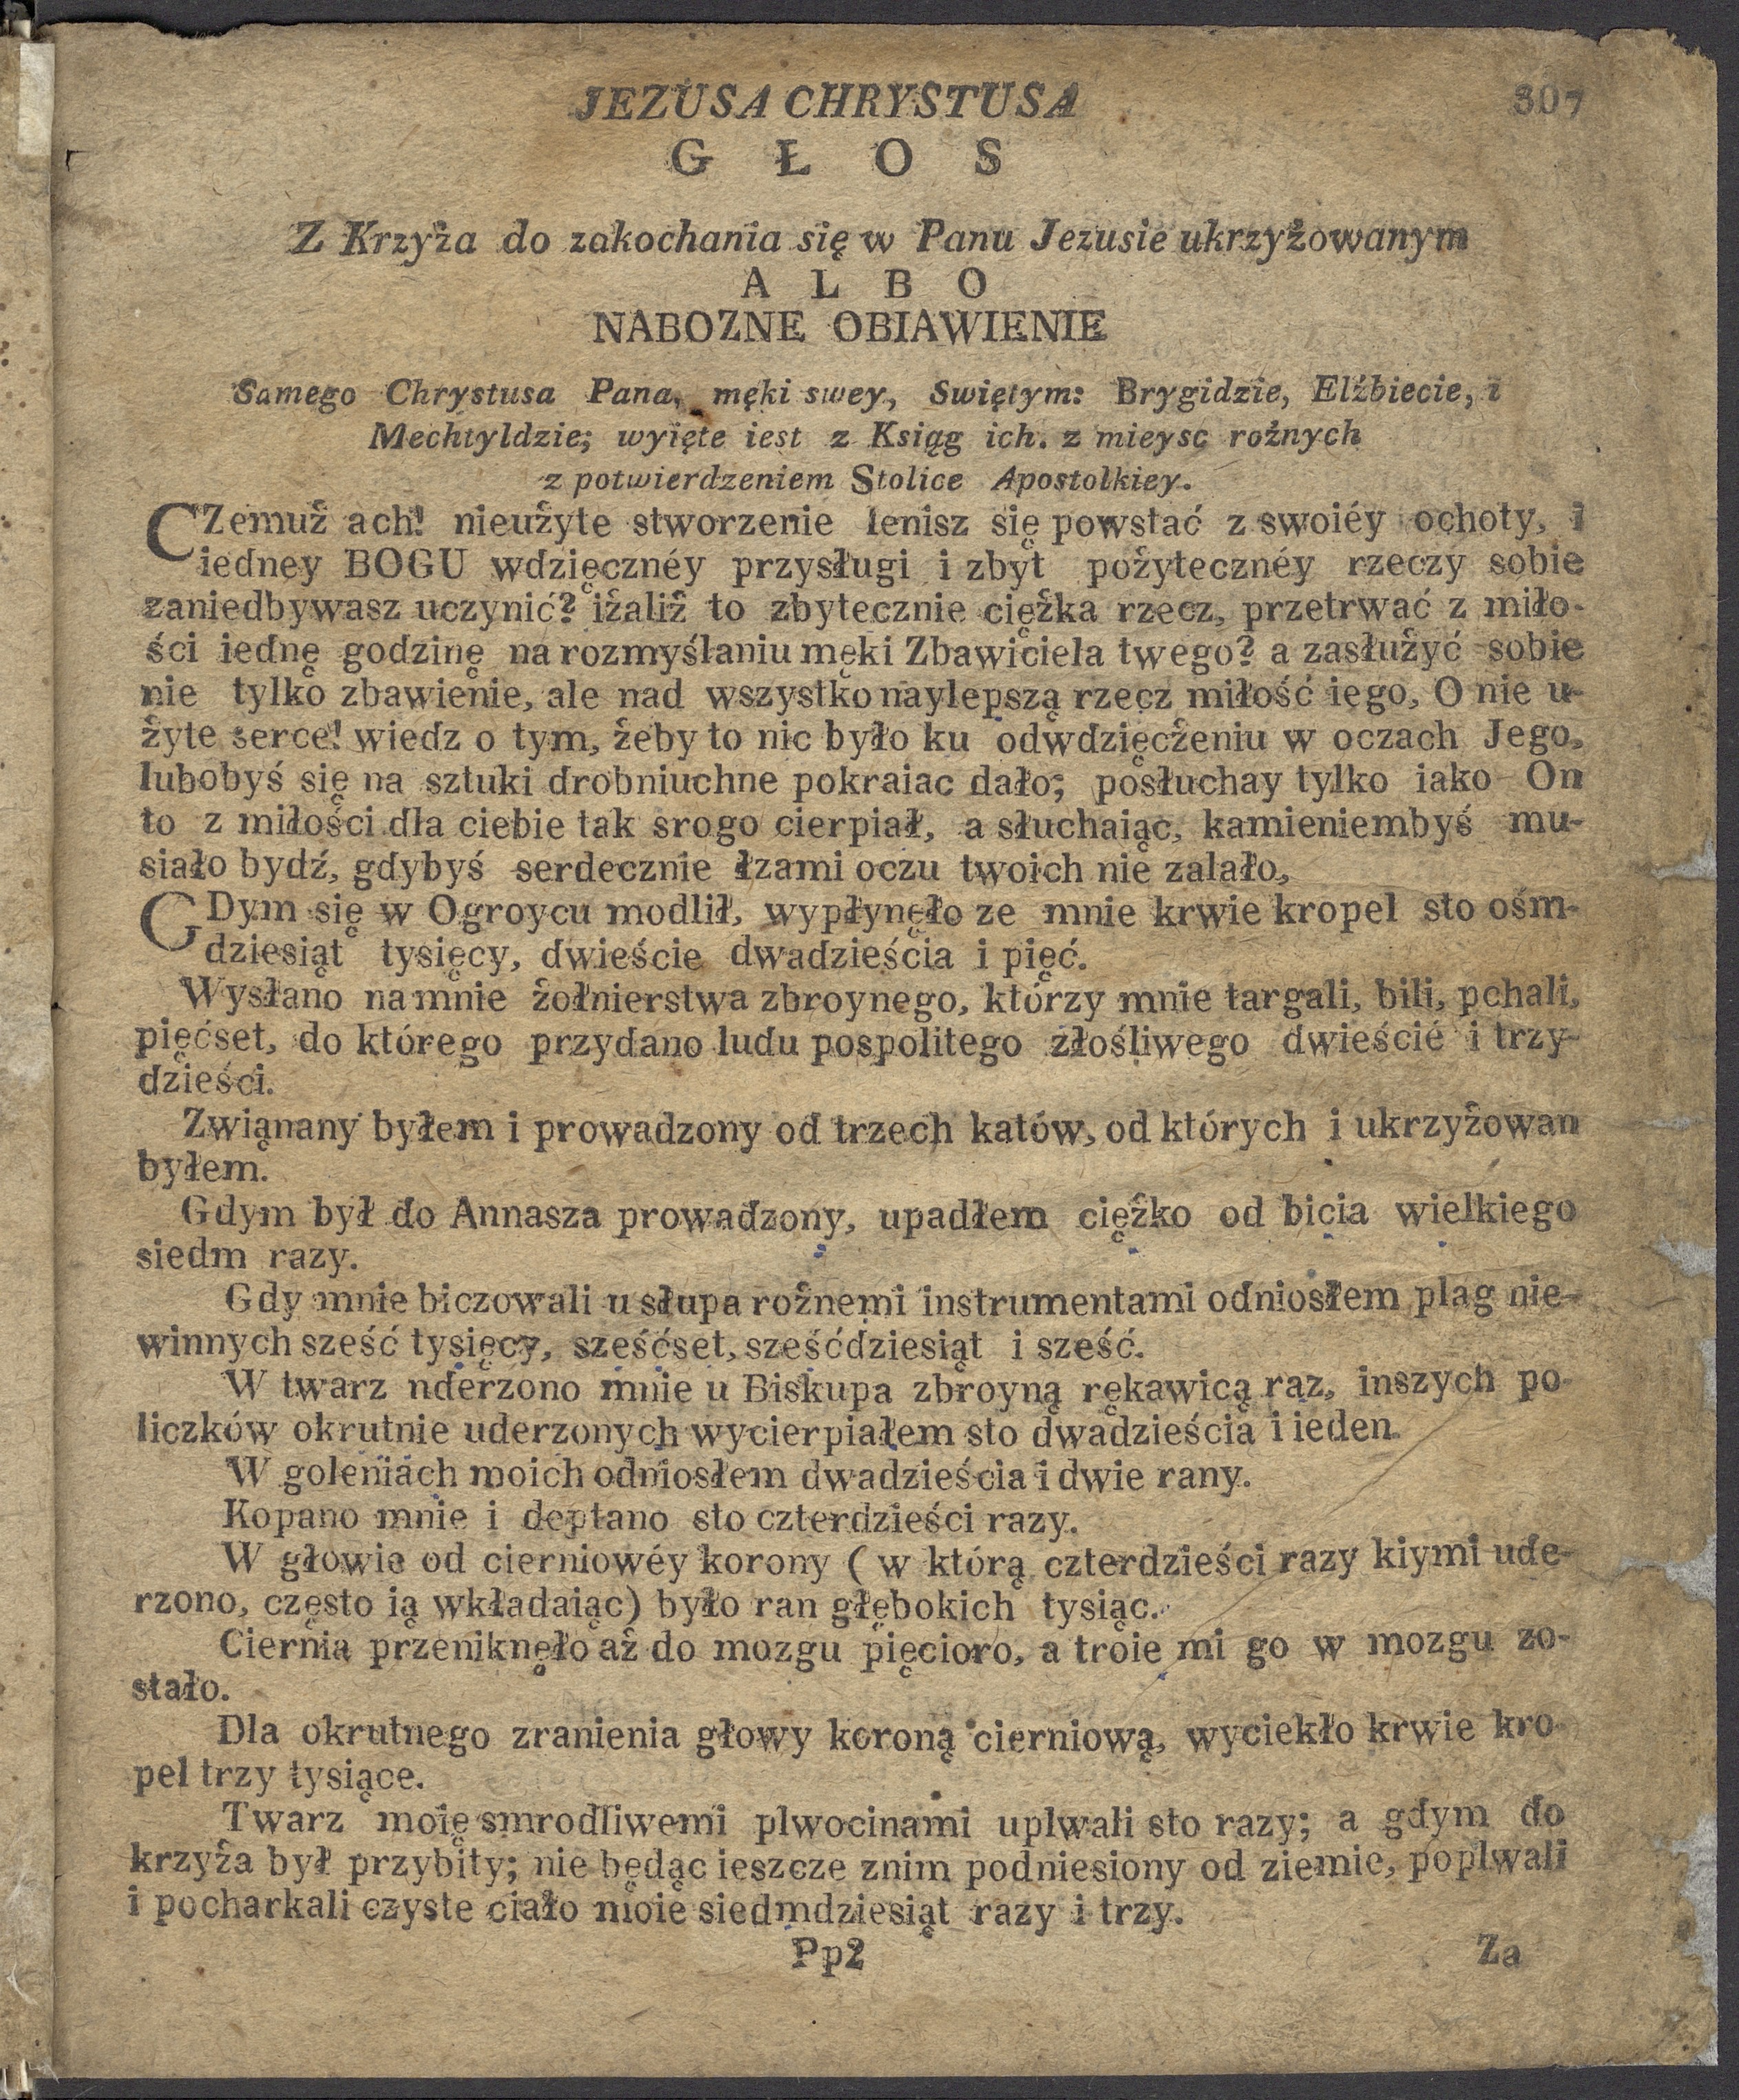 JEZUSA CHRYSTUSA 307
GŁOS
Z Krzyża do zakochania się w Panu Jezusie ukrzyżowanym
ALBO
NABOZNE OBIAWIENIE
Samego Chrystusa Pana, męki swey, Swiętym: Brygidzie, Elżbiecie, i
Mechtyldzie; wyięte iest z Ksiąg ich. z mieysc rożnych
z potwierdzeniem Stolice Apostolkiey.
CZemuż ach! nieużyte stworzenie lenisz się powstać z swoiéy ochoty, i
iedney BOGU wdzięcznéy przysługi i zbyt pożytecznéy rzeczy sobie
zaniedbywasz uczynić? iżaliż to zbytecznie ciężka rzecz, przetrwać z miło-
ści iednę godzinę na rozmyślaniu męki Zbawiciela twego? a zasłużyć sobie
nie tylko zbawienie, ale nad wszystko naylepszą rzecz miłość iego, O nie u-
żyte serce! wiedz o tym, żeby to nic było ku odwdzięcżeniu w oczach Jego,
lubobyś się na sztuki drobniuchne pokraiac dało; posłuchay tylko iako On
to z miłości dla ciebie tak srogo cierpiał, a słuchaiąc, kamieniembyś mu-
siało bydź, gdybyś serdecznie łzami oczu twoich nie zalało,
GDym się w Ogroycu modlił, wypłynęło ze mnie krwie kropel sto ośm-
dziesiąt tysięcy, dwieście dwadzieścia i pięć.
Wysłano na mnie żołnierstwa zbroynego, którzy mnie targali, bili, pchali,
pięćset, do którego przydano ludu pospolitego złośliwego dwieście i trzy-
dzieści.
Zwiąnany byłem i prowadzony od trzech katów, od których i ukrzyżowan
byłem.
Gdym był do Annasza prowadzony, upadłem ciężko od bicia wielkiego
siedm razy.
Gdy mnie biczowali u słupa rożnemi instrumentami odniosłem plag nie-
winnych sześć tysięcy, sześćset, sześćdziesiąt i sześć.
W twarz nderzono mnie u Biskupa zbroyną rękawicą raz, inszych po-
liczków okrutnie uderzonych wycierpiałem sto dwadzieścia i ieden.
W goleniach moich odniosłem dwadzieścia i dwie rany.
Kopano mnie i deptano sto czterdzieści razy.
W głowie od cierniowéy korony (w którą czterdzieści razy kiymi ude-
rzono, często ią wkładaiąc) było ran głębokich tysiąc.
Ciernia przeniknęło aż do mozgu pięcioro, a troie mi go w mozgu zo-
stało.
Dla okrutnego zranienia głowy koroną cierniową, wyciekło krwie kro-
pel trzy tysiące.
Twarz moię smrodliwemi plwocinami uplwali sto razy; a gdym do
krzyża był przybity; nie będąc ieszcze znim podniesiony od ziemie, poplwali
i pocharkali czyste ciało moie siedmdziesiąt razy i trzy.
Pp2 Za